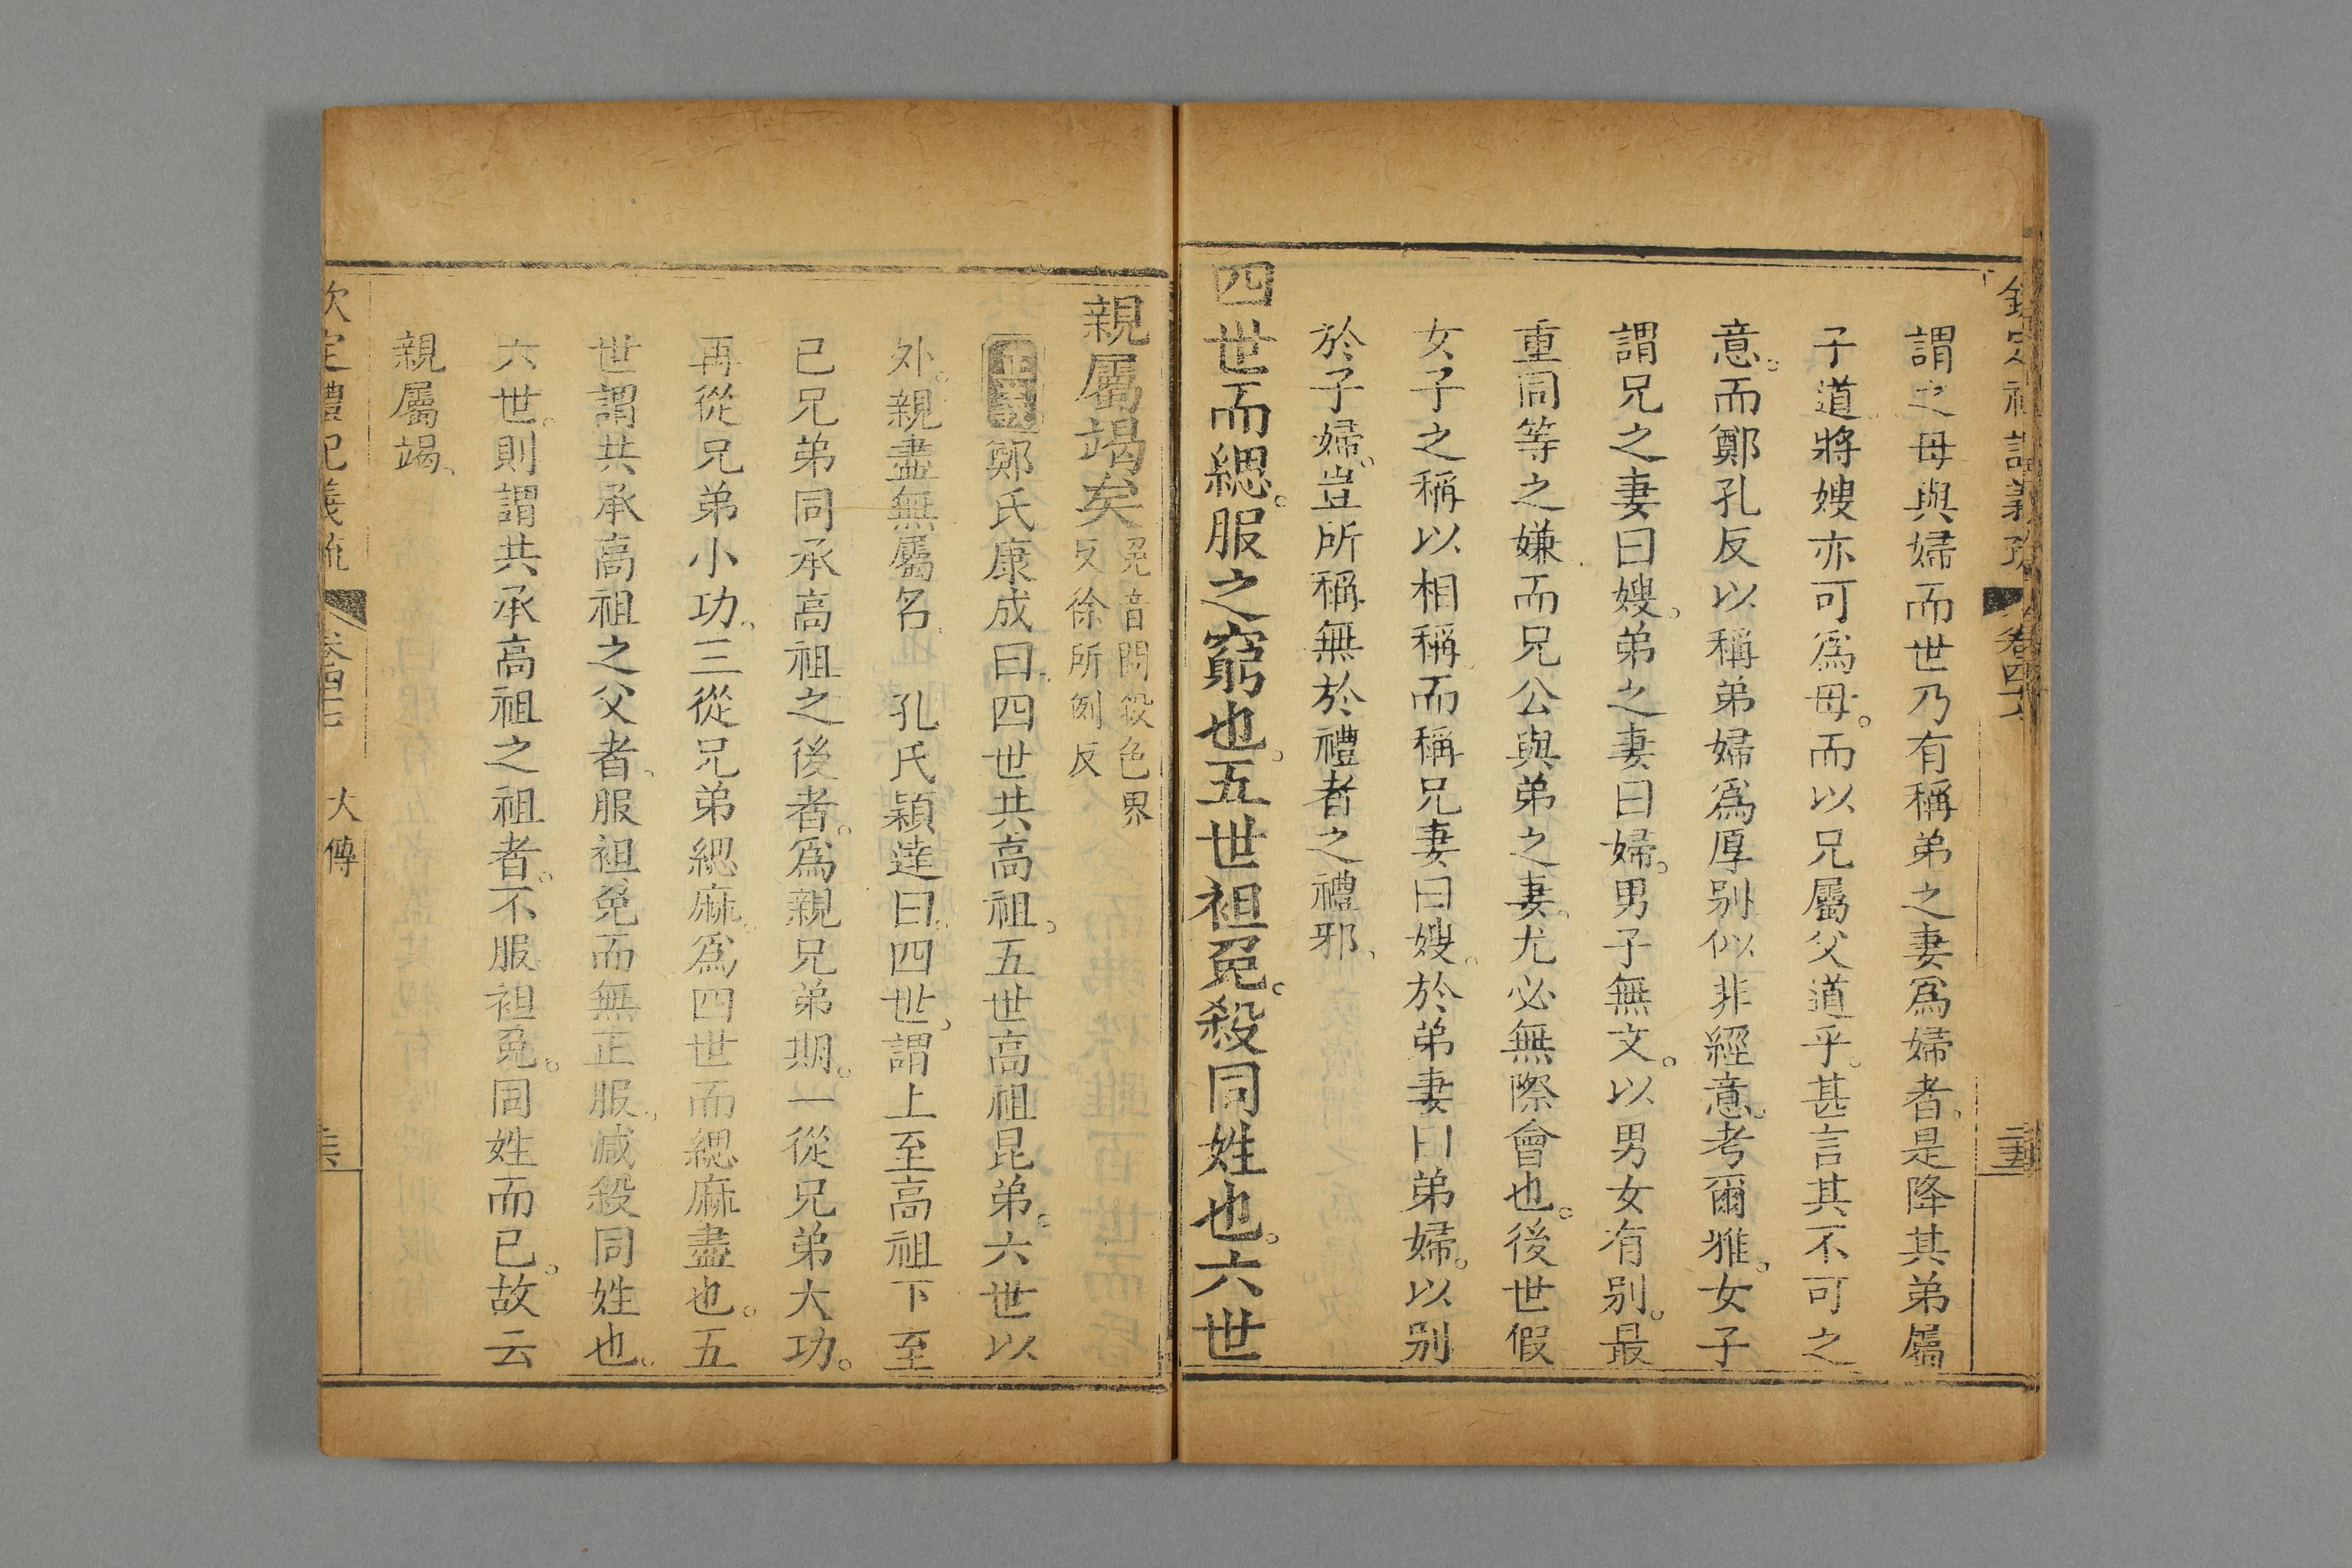 謂之母與婦而世乃有稱弟之妻爲婦者。是降其弟屬
子道。將嫂亦可爲母。而以兄屬父道乎。甚言其不可之
意。而鄭孔反以稱弟婦爲厚別似非經意。考爾雅。女子
謂兄之妻曰嫂。弟之妻曰婦。男子無文。以男女有別。最
重同等之嫌、而兄公與弟之妻。尤必無際會也。後世假
女子之稱以相稱、而稱兄妻曰嫂。於弟妻曰弟婦。以別
於子婦。豈所稱無於禮者之禮邪、
四世而緦。服之窮也。五世袒免。殺同姓也。六世
親屬竭矣
免音問殺色界
反徐所例反
正義鄭氏康成曰、四世共高祖。五世高祖昆弟。六世以
外。親盡無屬名、孔氏穎達曰、四世、謂上至高祖下至
已兄弟同承高祖之後者。爲親兄弟期。一從兄弟大功。
再從兄弟小功、三從兄弟緦麻。爲四世而緦麻盡也。五
世謂共承高祖之父者、服袒免而無正服、減殺同姓也。
六世。則謂共承高祖之祖者。不服袒免。同姓而已。故云
親屬竭、
欽定禮記義疏 卷四十七 大傳